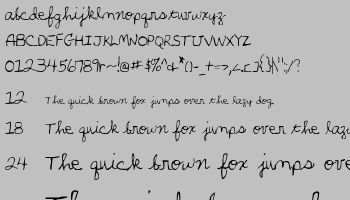 abcdefghijklmnopqrstuvwxyz
ABCDEFGHIJKLMNOPQRSTUVWXYZ
0123456789
12 The quick brown fox jumps over the lazy dog
18 The quick brown fox jumps over the lazy
24 The quick brown fox jumps over